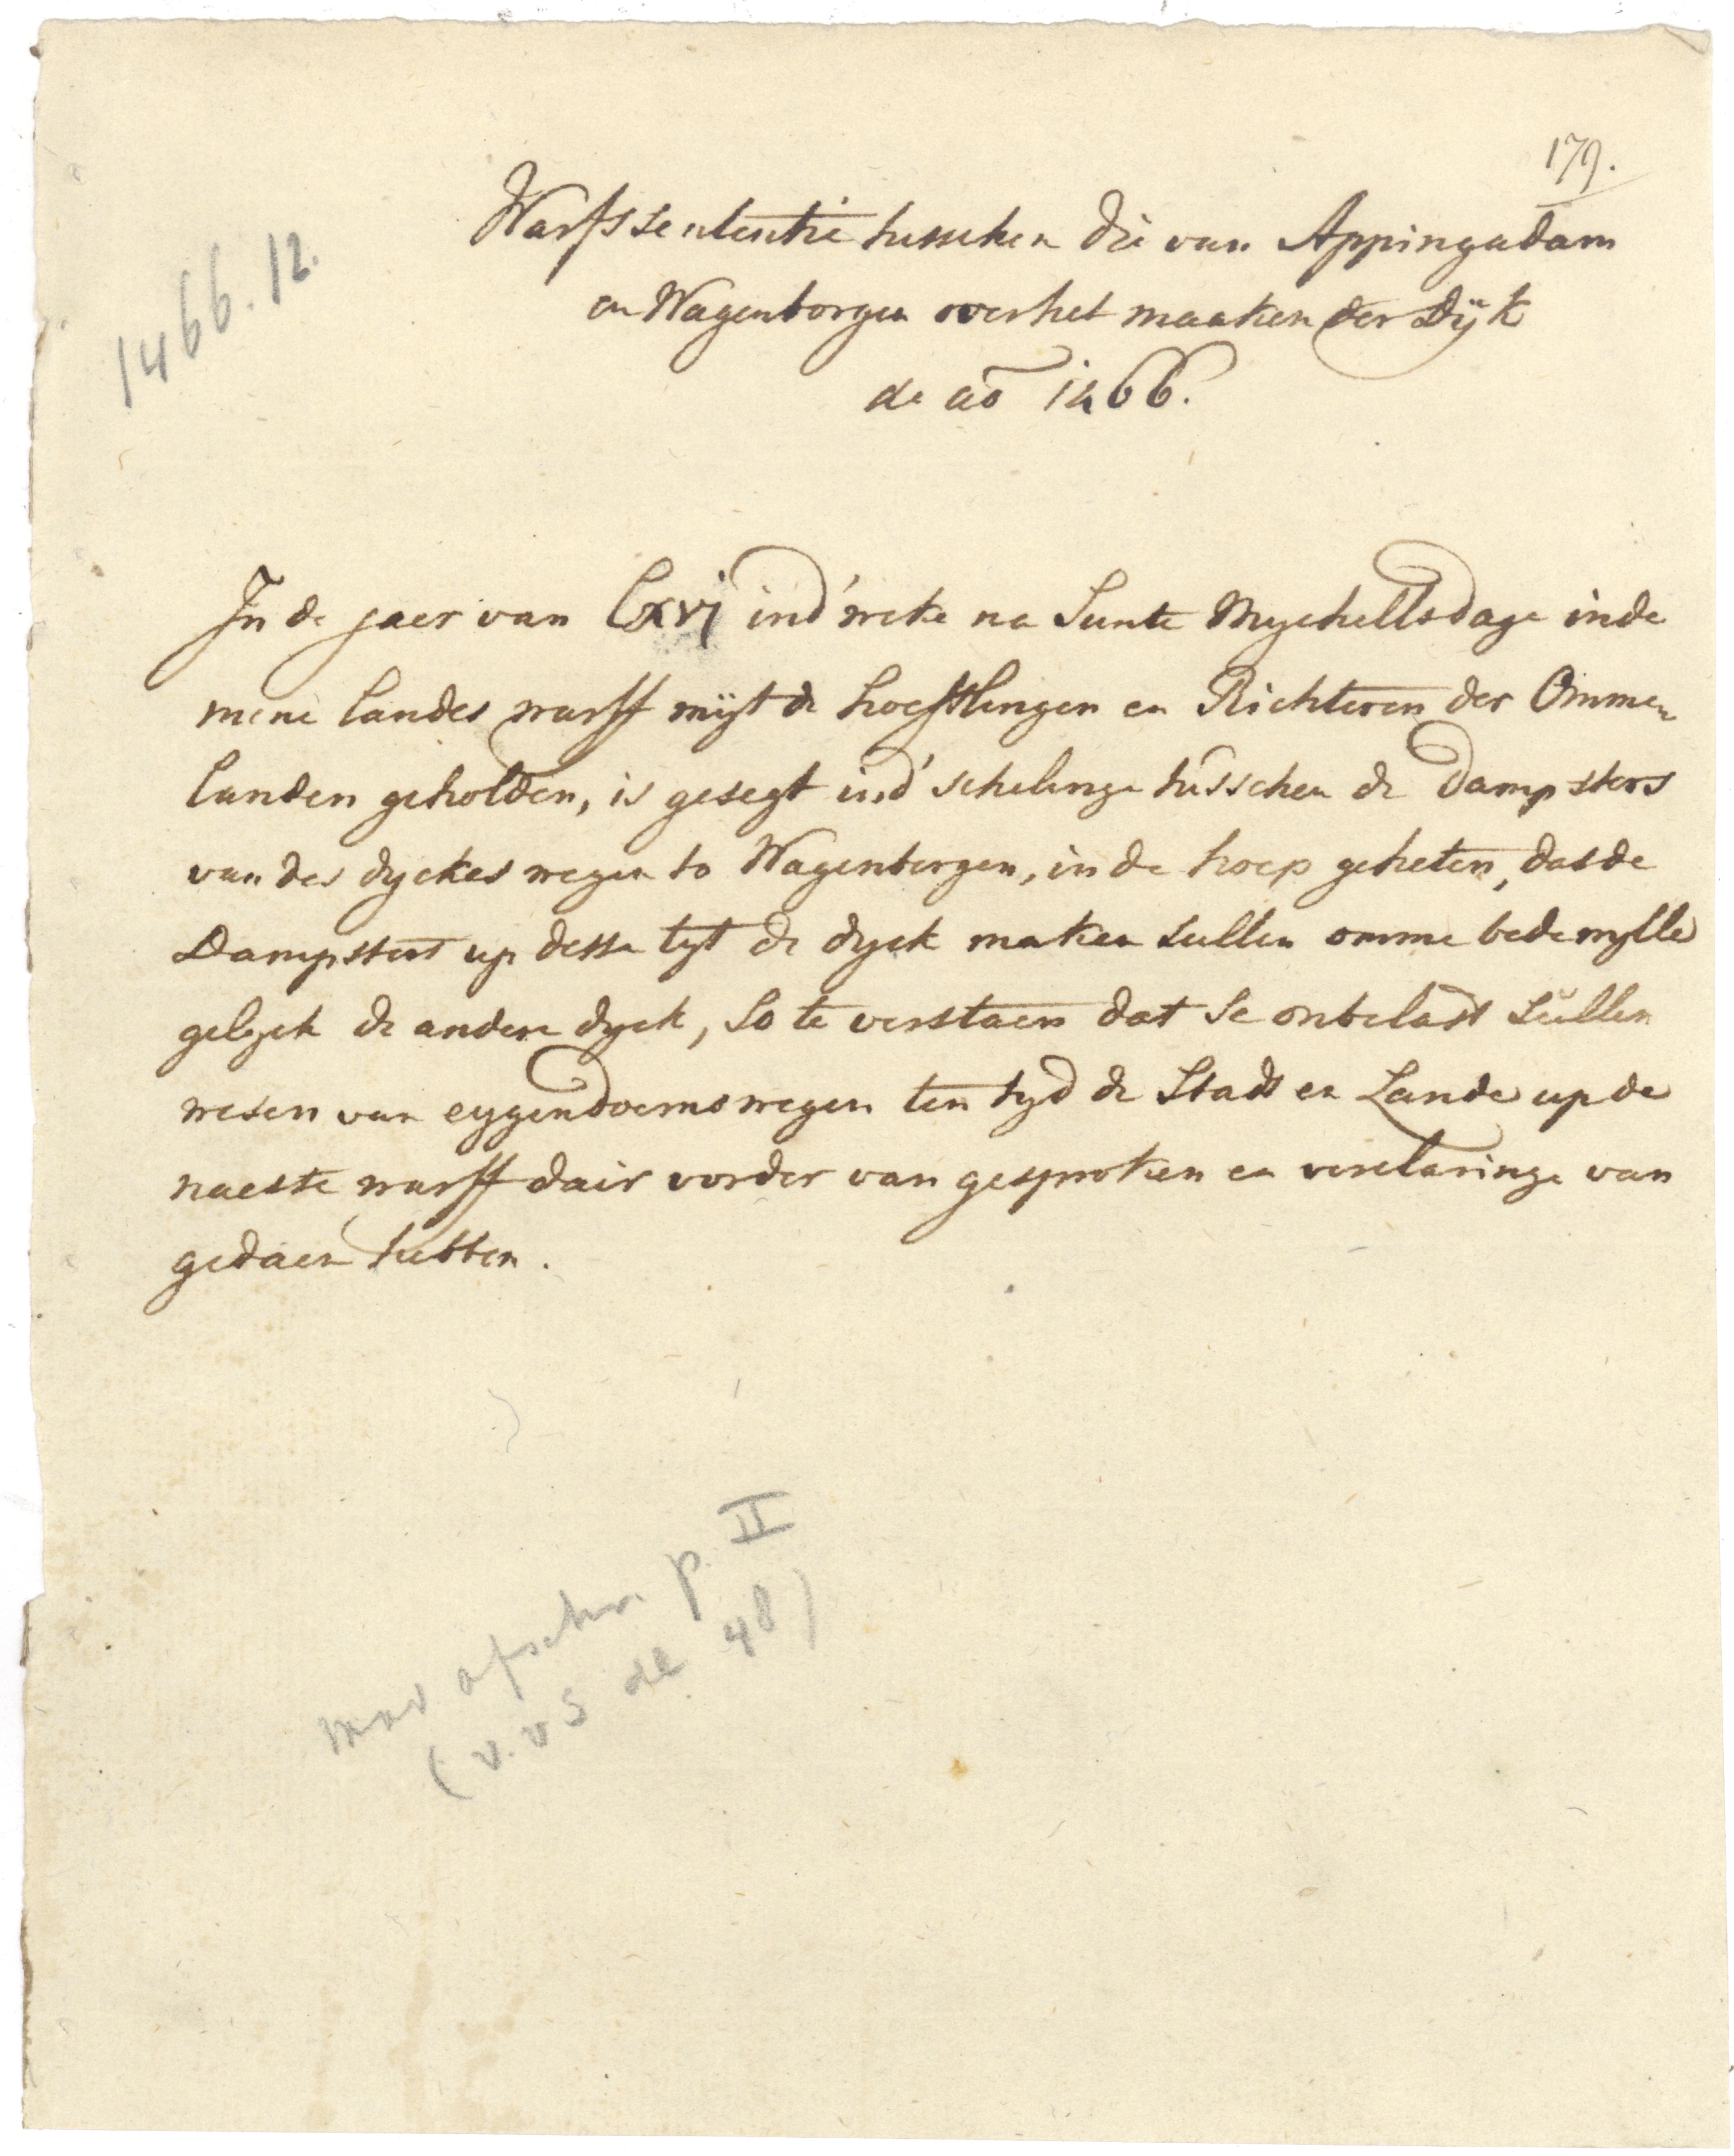 179.
1466.12.
Warfssententie tusschen die van Appingadam
en Wagenborgen over het maaken der Dÿk
de ao 1466.
In de jaer van Lxvj ind' weke na Sunte Mychellsdage inde
mene Landes warff mÿt de hoefftlingen en Richteren der Ommen
landen geholden, is gesegt ind' schelinge tusschen de Dampsters
van des dyckes wegen to Wagenborgen, in de hoep geheten, dat de
Dampsters up desse tyt de dyck maken sullen omme bede wylle
gelyck de andere dyck, so te verstaen dat se onbelast sullen
wesen van eygendoems wegen ten tyd de Stadt en Lande up de
naeste warff dair vorder van gesproken en verclaringe van
gedaen hebben.
mod afschr. p. II
(v. v S dl 48)